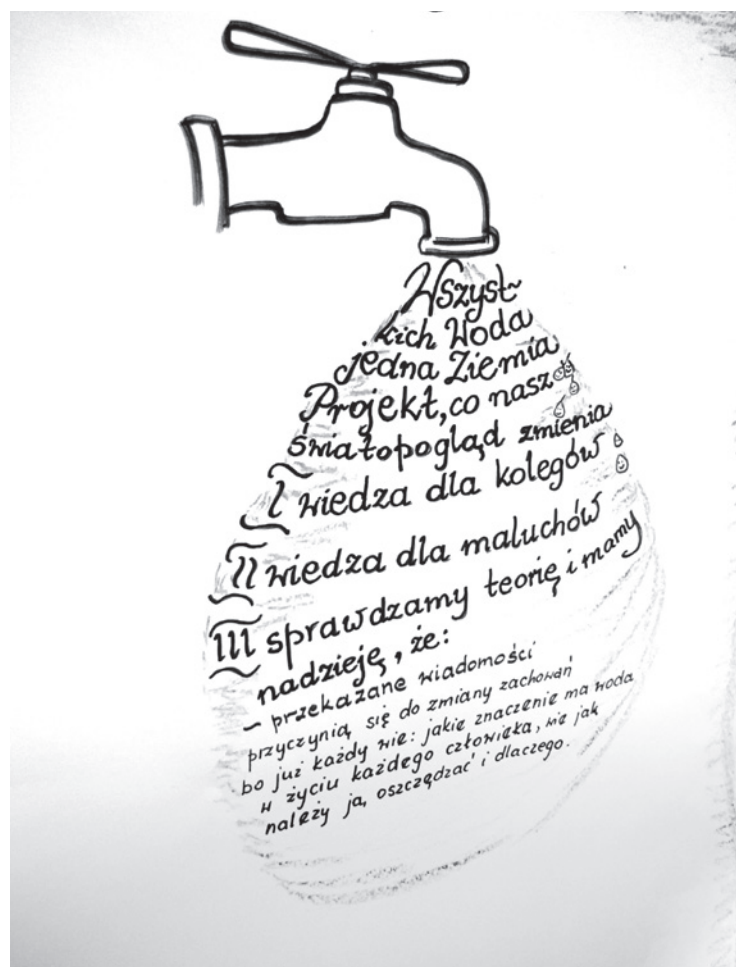 Wszyst~
kich Woda
jedna Ziemia
Projekt, co nasz
światopogląd zmienia
I wiedza dla kolegów
II wiedza dla maluchów
III sprawdzamy teorię i mamy
nadzieję, że:
– przekazane wiadomości
przyczynią się do zmiany zachowań
bo już każdy wie: jakie znaczenie ma woda
w życiu każdego człowieka, wie jak
należy ją oszczędzać i dlaczego.